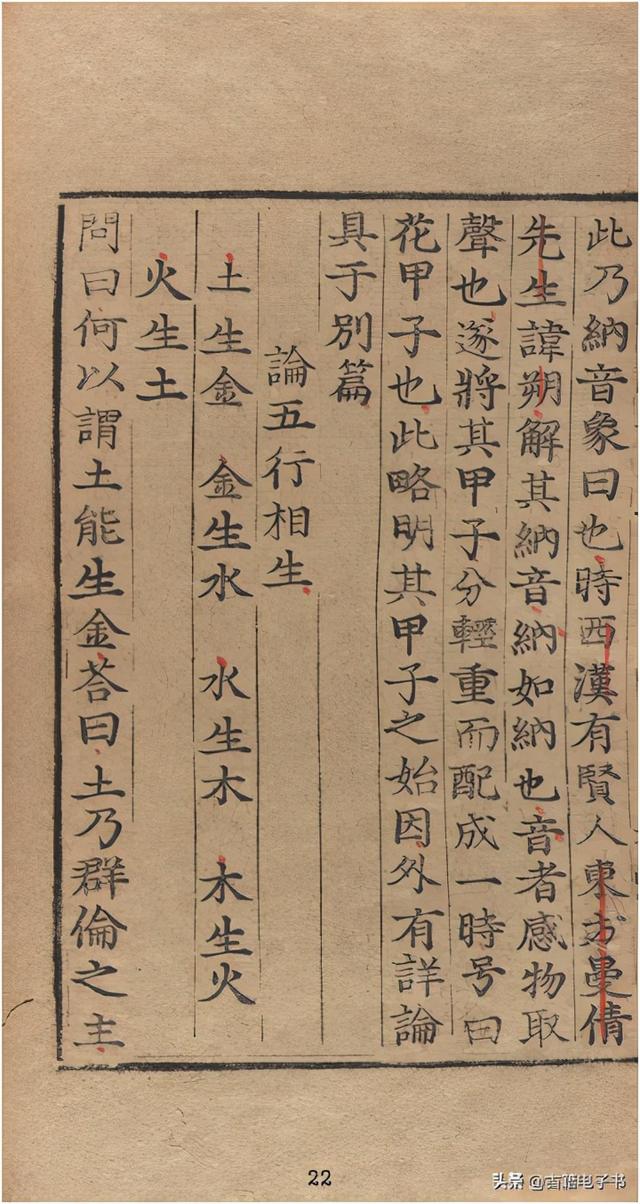 此乃納音象曰也時西漢有賢人東方曼倩
先生諱朔解其納音納如納也音者感物取
聲也遂將其甲子分輕重而配成一時号曰
花甲子也此略明其甲子之始因外有詳論
具于別篇
論五行相生
土生金 金生水 水生木 木生火
火生土
問曰何以謂土能生金荅曰土乃群倫之主
22
头条@古籍电子书